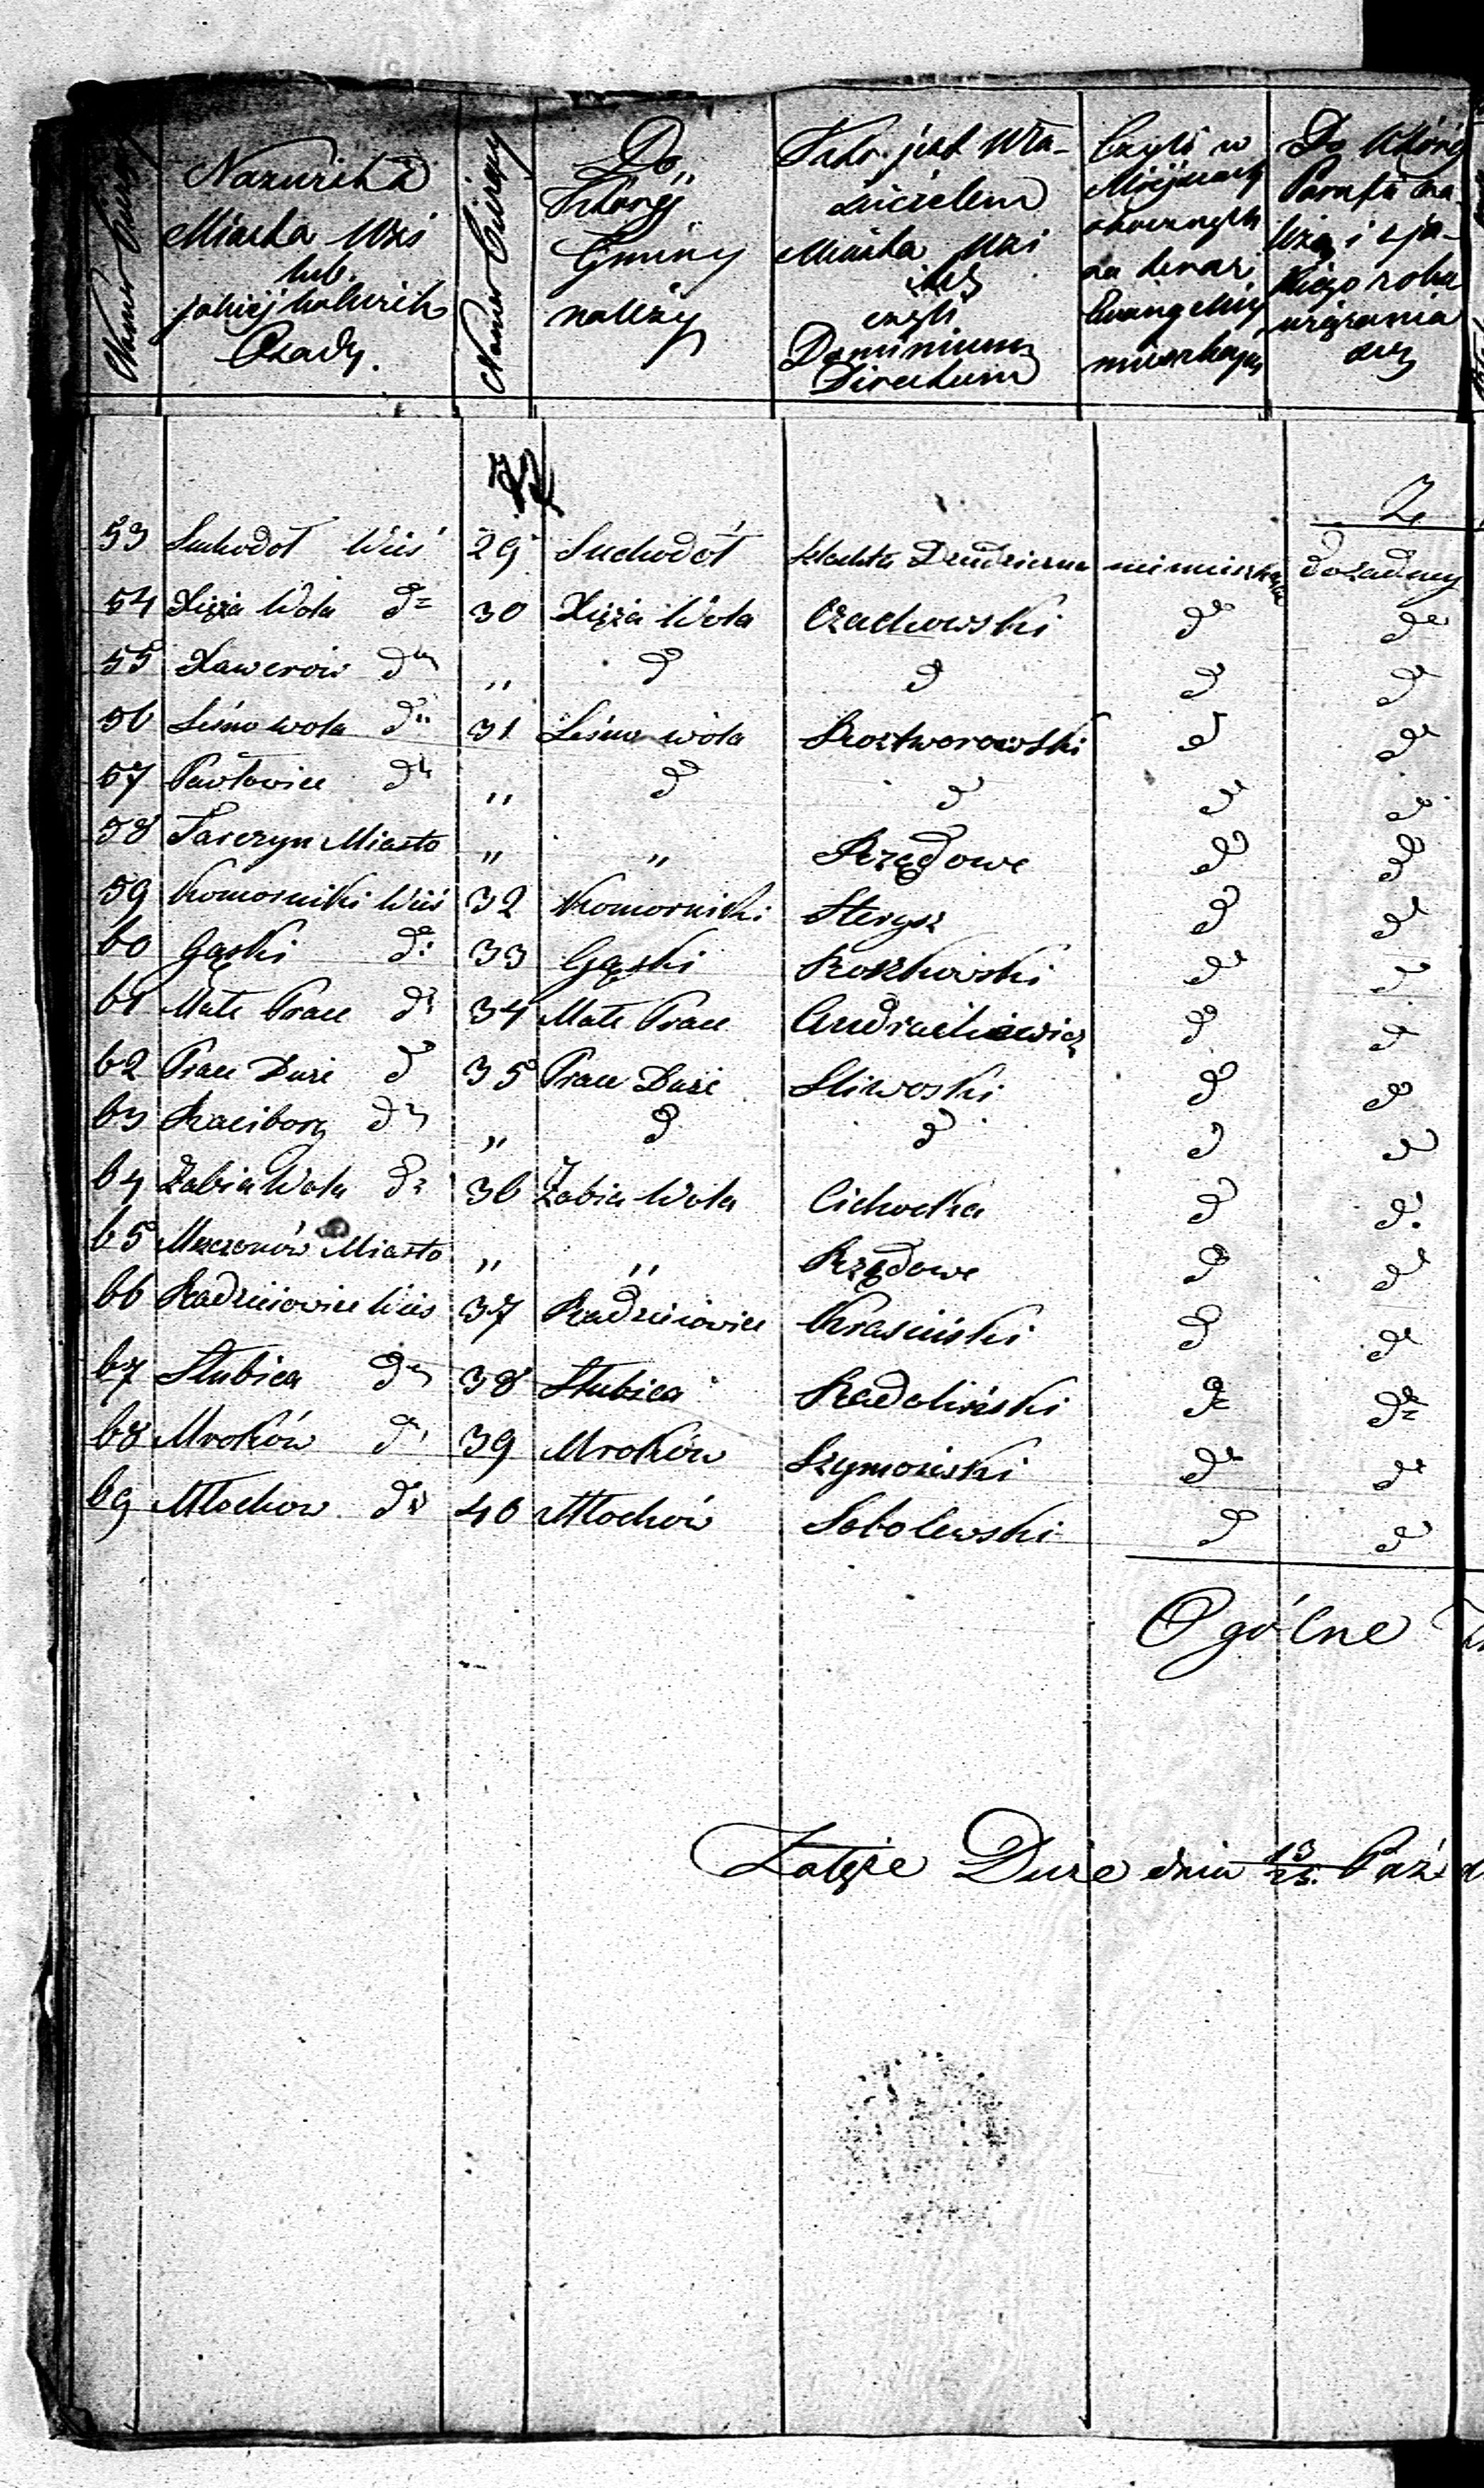 Numer Bieżący
Nazwisko
Miasta Wsi
lub
jakiejkolwiek
Osady.
Numer Bieżący
Do
Której
Gminy
należy
Kto jest Wła-
ścicielem
Miasta Wsi
czyli
Dominium
Directum
Czyli w
Miejscach
obecnych
na teraz
Ewangelicy
mieszkają
Do którey
Parafii na-
leżą i z ja-
kiego roku
Z
53 Suchodoł Wieś 29 Suchodół Szlachta Dziedziczna niemieszkają do żadney
54 Xięża Wola do 30 Xięża Wola Czachowski do do
55 Xawerów do " do do do do
56 Leśno wola do 31 Leśno wola Roztworowski do do
57 Pawłowice do " do do do do
58 Tarczyn Miasto " " Rządowe do do
59 Komorniki Wieś 32 Komorniki do do
60 Gąski do 33 Gąski Roszkowski do do
61 Małe Prace do 34 Małe Prace do do
62 Prace Duże do 35 Prace Duże Sliwoski do do
63 Racibory do " do do do do
64 Żabia Wola do 36 Żabia Wola Cichocka do do
65 Mszczonów Miasto " " Rządowe do do
66 Radzieiowice Wieś 37 Radzieiowice Krasiński do do
67 Słubica do 38 Słubica Radoliński do do
68 Mroków do 39 Mroków Szymoński do do
69 Młochow do 40 Młochów Sobolewski do do
Ogólne
Załęże Duże dnia 13/25. Paźd